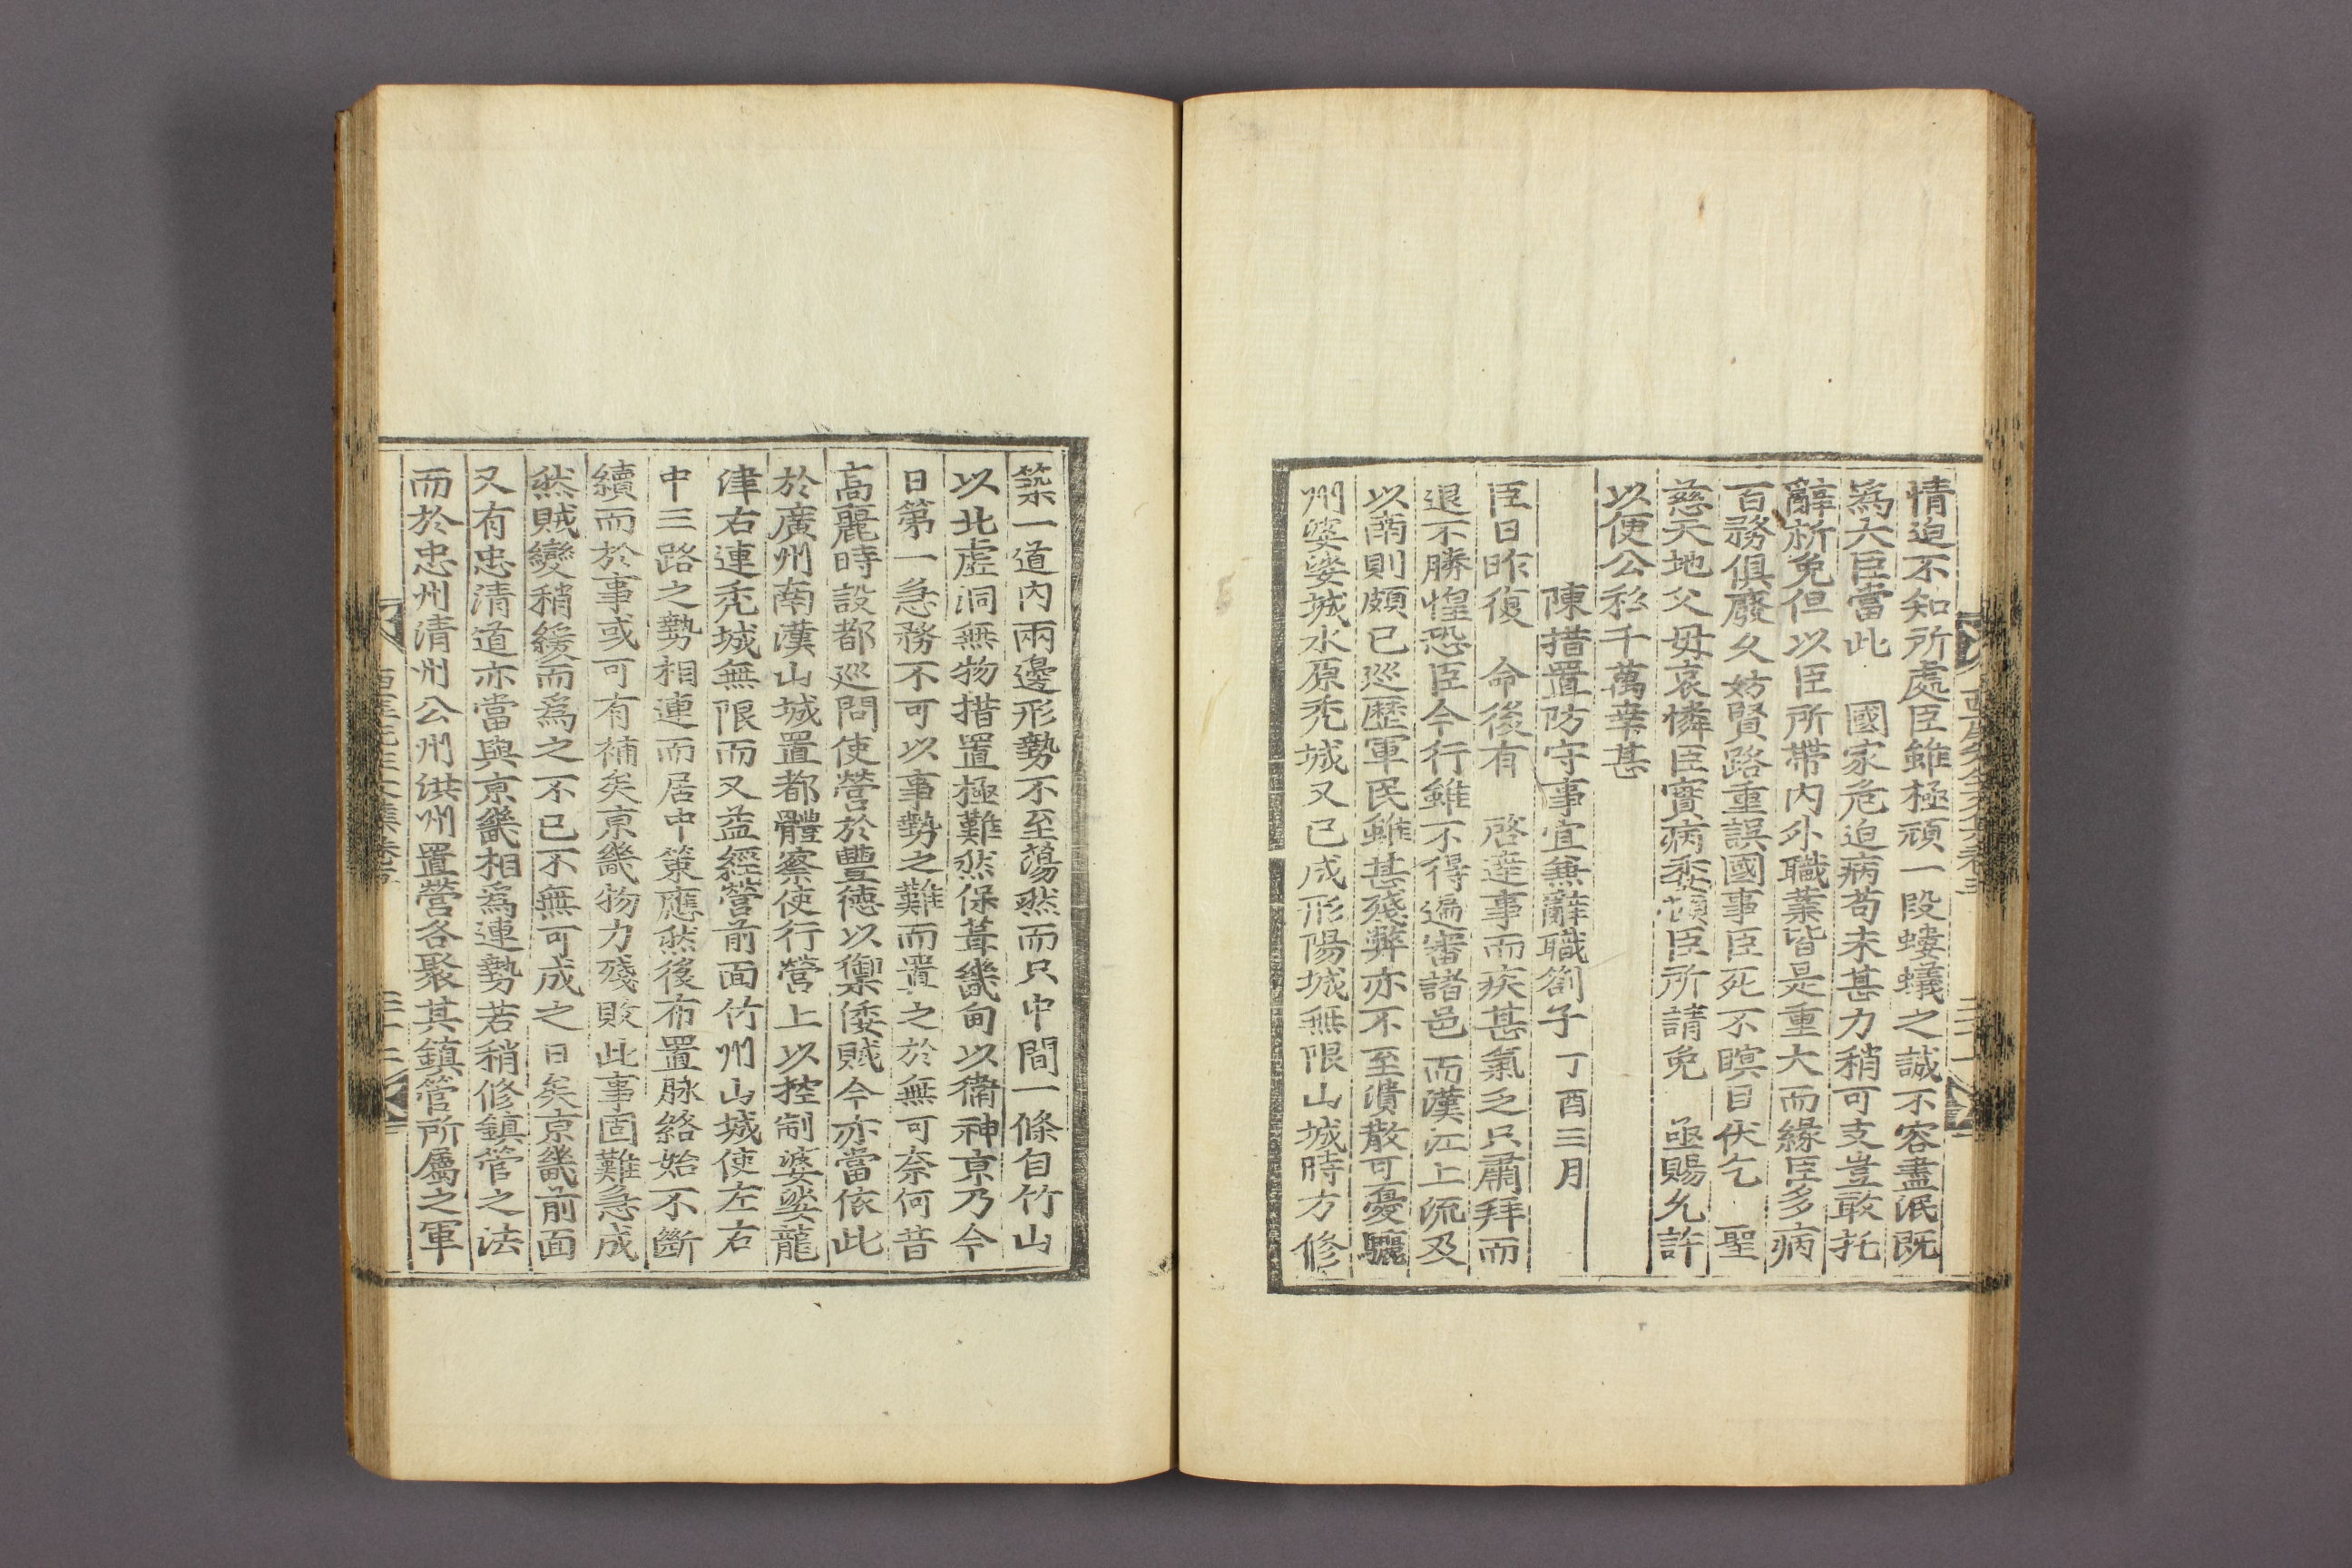 情迫不知所處臣雖極頑一段螻蟻之誠不容盡泯旣
爲大臣當此 國家危迫病苟未甚力稍可支豈敢托
辭祈免但以臣所帶內外職業皆是重大而緣臣多病
百務俱廢久妨賢路重誤國事臣死不瞑目伏乞 聖
慈天地父母哀憐臣實病委頓臣所請免 亟賜允許
以便公私千萬幸甚
陳措置防守事宜兼辭職箚子 丁酉三月
臣日昨復 命後有 啓達事而疾甚氣乏只肅拜而
退不勝惶恐臣今行雖不得遍審諸邑而漢江上流及
以南則頗已巡歷軍民雖甚殘弊亦不至潰散可憂驪
州婆娑城水原禿城又已成形陽城無限山城時方修
築一道內兩邊形勢不至蕩然而只中間一條自竹山
以北虛洞無物措置極難然保葺畿甸以衛神京乃今
日第一急務不可以事勢之難而置之於無可奈何昔
高麗時設都巡問使營於豐德以禦倭賊今亦當依此
於廣州南漢山城置都體察使行營上以控制婆娑龍
津右連禿城無限而又益經營前面竹州山城使左右
中三路之勢相連而居中策應然後布置脉絡始不斷
續而於事或可有補矣京畿物力殘敗此事固難急成
然賊變稍緩而爲之不已不無可成之日矣京畿前面
又有忠清道亦當與京畿相爲連勢若稍修鎮管之法
而於忠州清州公州洪州置營各聚其鎮管所屬之軍